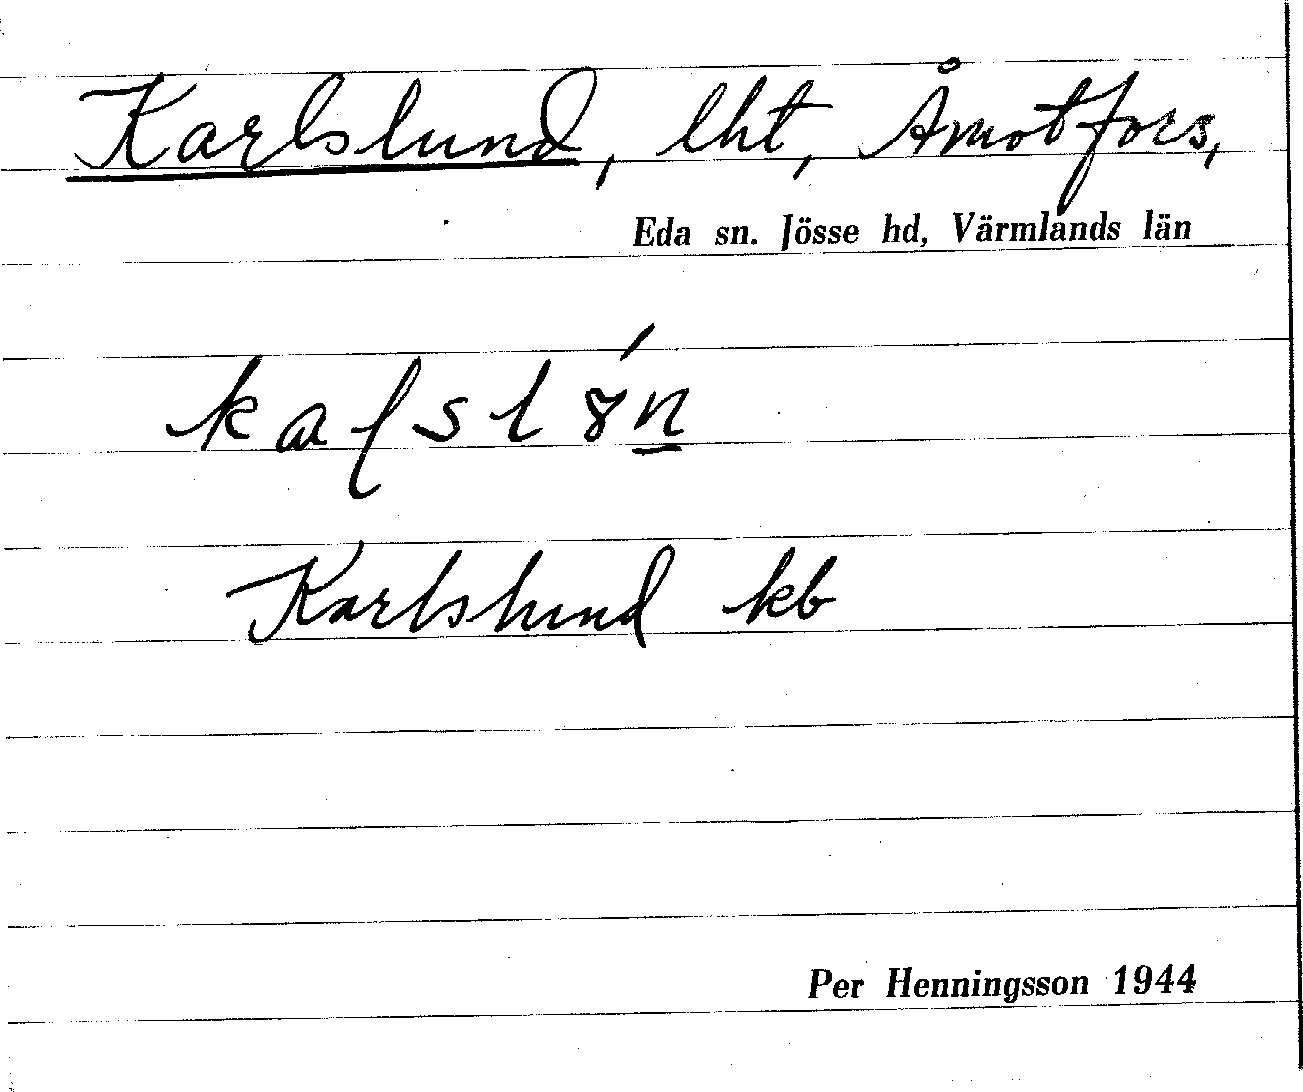 Karlslund, lht, Åmotfors,
Eda sn. Jösse hd, Värmlands län
Karlslund kb
Per Henningsson 1944